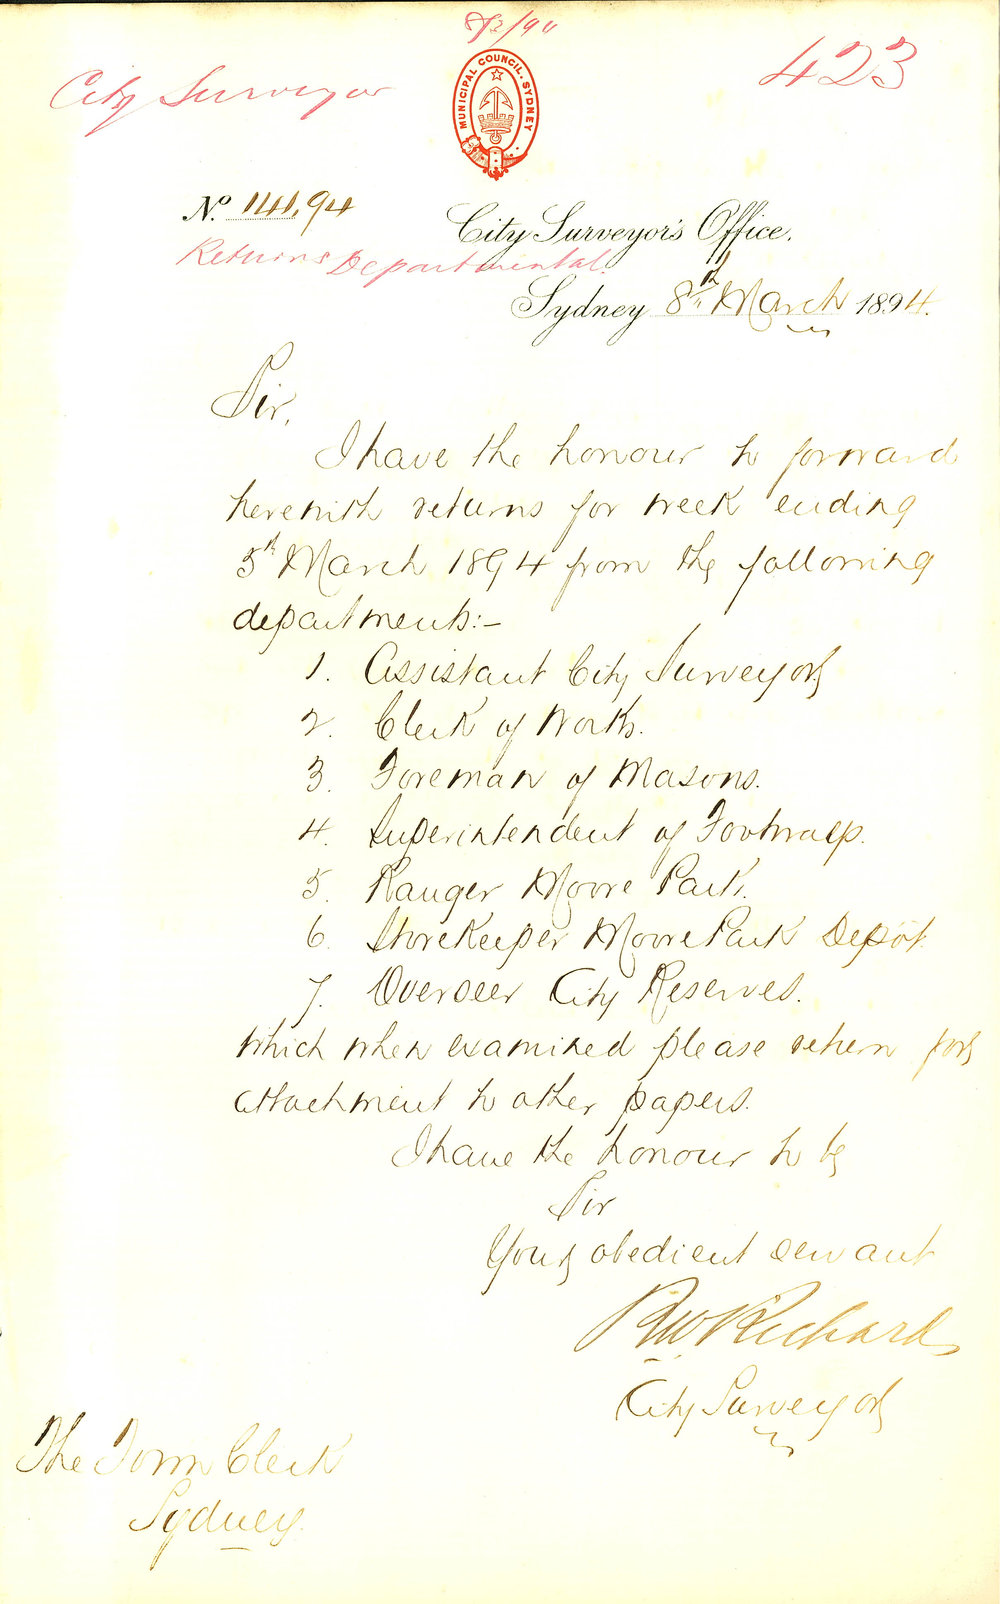 8/3/94
423
City Surveyor
MUNICIPAL COUNCIL. SYDNEY
No. 141,94
City Surveyor's Office,
Returns Departmental.
Sydney 8th March 1894.
Sir,
I have the honour to forward
herewith returns for week ending
5th March 1894 from the following
departments:-
1. Assistant City Surveyor
2. Clerk of Works.
3. Foreman of Masons.
4. Superintendent of Footways.
5. Ranger Moore Park.
6. Storekeeper Moore Park Depôt.
7. Overseer City Reserves.
which when examined please return for
attachment to other papers.
I have the honour to be
Sir
Your obedient servant
RW Richards
City Surveyor
The Town Clerk
Sydney.